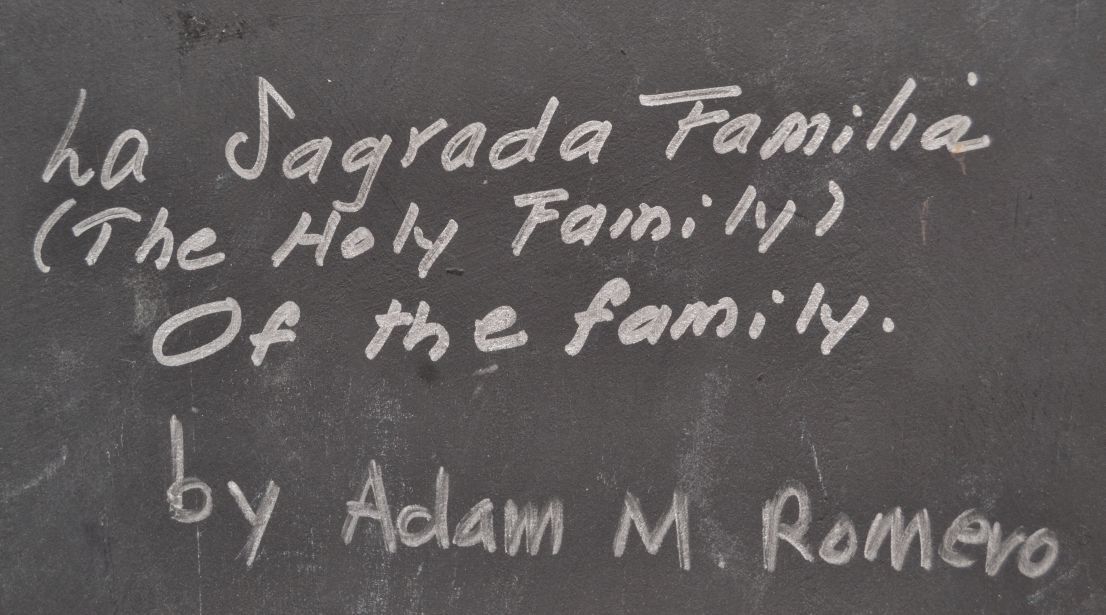 La Sagrada Familia
(The Holy Family)
Of the family.
by Adam M. Romero